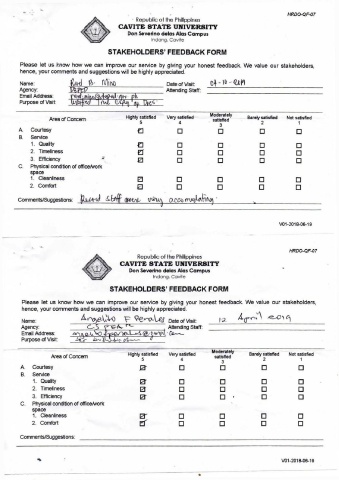 HRDO-QF-07
Republic of the Philippines
CAVITE STATE UNIVERSITY
Don Severino delas Alas Campus
Indang, Cavite
STAKEHOLDERS' FEEDBACK FORM
Please let us know how we can improve our service by giving your honest feedback. We value our stakeholders,
hence, your comments and suggestions will be highly appreciated.
Name: B. Nino Date of Visit: 04-10-2019
Agency: Attending Staff:
Email Address:
Purpose of Visit: True Copy of Docs
Area of Concern Highly satisfied 5 Very satisfied 4 Moderately satisfied 3 Barely satisfied 2 Not satisfied 1
A. Courtesy
B. Service
1. Quality
2. Timeliness
3. Efficiency
C. Physical condition of office/work
space
1. Cleanliness
2. Comfort
Comments/Suggestions: Record staff were very accomodating
V01-2018-06-19
HRDO-QF-07
Republic of the Philippines
CAVITE STATE UNIVERSITY
Don Severino delas Alas Campus
Indang, Cavite
STAKEHOLDERS' FEEDBACK FORM
Please let us know how we can improve our service by giving your honest feedback. We value our stakeholders,
hence, your comments and suggestions will be highly appreciated.
Name: Angelito F Perales Date of Visit: 12 April 2019
Agency: Attending Staff:
Email Address:
Purpose of Visit:
Area of Concern Highly satisfied 5 Very satisfied 4 Moderately satisfied 3 Barely satisfied 2 Not satisfied 1
A. Courtesy
B. Service
1. Quality
2. Timeliness
3. Efficiency
C. Physical condition of office/work
space
1. Cleanliness
2. Comfort
Comments/Suggestions:
V01-2018-06-19